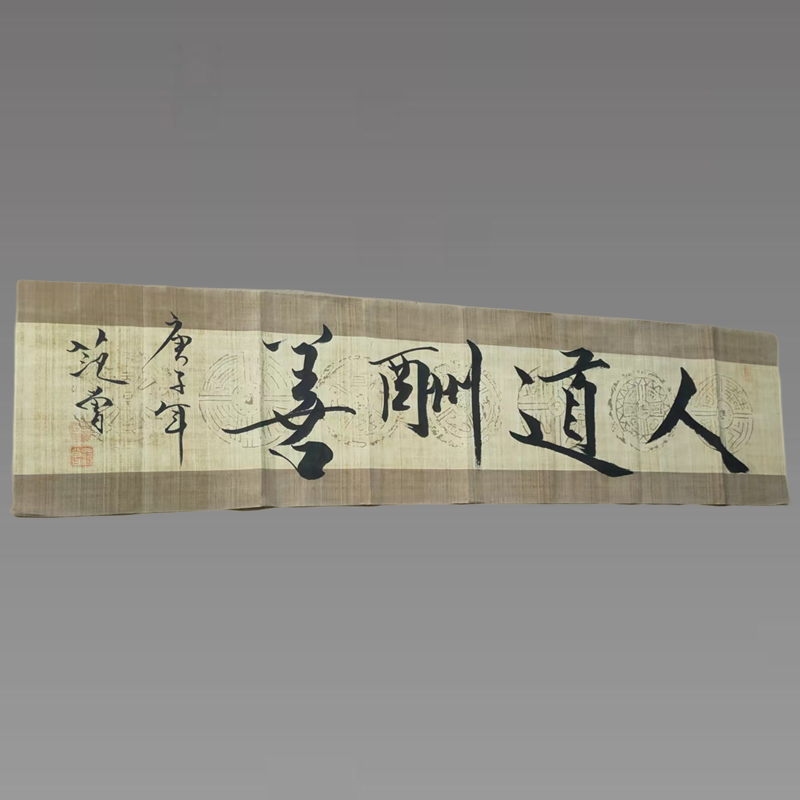 人道酬善
庚子年
范曾